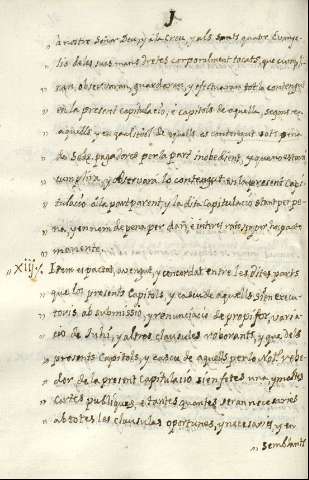 J
" à nostre Señor Deu, y á la Creu, y als Sants quatre Evange-
" lis de les sues mans dretes corporalment tocats, que cumpli-
" ran, observaran, guardaran, y efectuaran tot lo contengut
" en la present Capitulació, è capitols de aquella, segons en
" aquells, y en qualsevol de aquells es contengut sots pena
" de pagadores per la part inobedient, y que no estara
" cumplira, y observará lo contengut en la present Capi-
" tulació á la part parent, y la dita Capitulació stant per pe-
" na, y en nom de pena per dañ, è interes ratos in pactes
" manente.
" Xiij. Item es pactat, avengut, y concordat entre les dites parts
" que los presents Capitols, y cascu de aquells, sien execu-
" toris ab submissio, y renunciacio de propi for, varia-
" cio de Juhi, y altres clausules roborants, y que dels
" presents Capitols, y cascu de aquells per lo Not.º rebe-
" dor de la present Capitulació sien fetes una, y moltes
" Cartes publiques, è tantes quantes seran necesaries
" ab totes les clausules oportunes, y necesaries, y en
" semblants